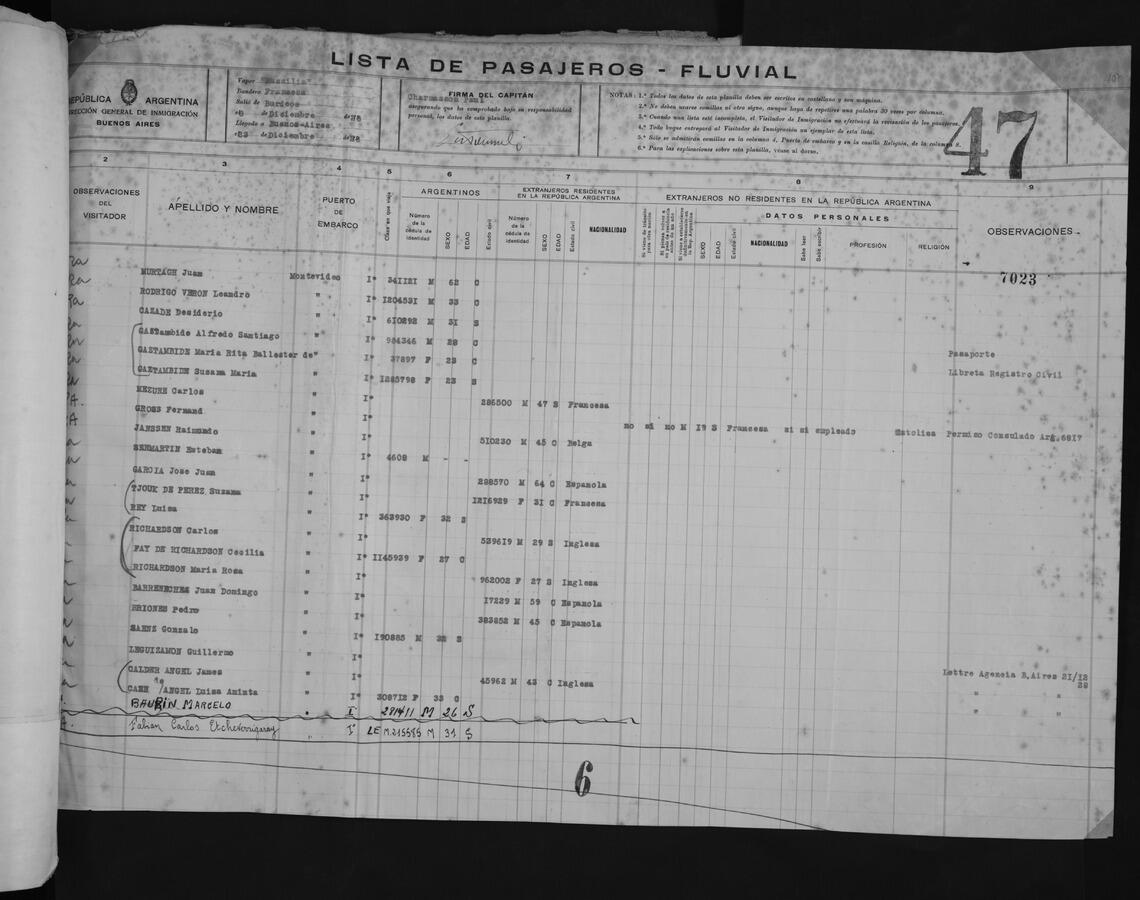 LISTA DE PASAJEROS - FLUVIAL
REPÚBLICA ARGENTINA
DIRECCIÓN GENERAL DE INMIGRACIÓN
BUENOS AIRES
Vapor "Massilia"
Bandera Francesa
Salió de Burdeos
el 8 de Diciembre de 193
Llegado a Buenos-Aires
el 23 de Diciembre de 193
FIRMA DEL CAPITÁN
Charmasson Paul
asegurando que ha comprobado bajo su responsabilidad
personal, los datos de esta planilla.
NOTAS: 1.ª Todos los datos de esta planilla deben ser escritos en castellano y con máquina.
2.ª No deben usarse comillas ni otro signo, aunque haya de repetirse una palabra 30 veces por columna.
3.ª Cuando una lista esté incompleta, el Visitador de Inmigración no efectuará la revisación de los pasajeros.
4.ª Todo buque entregará al Visitador de Inmigración un ejemplar de esta lista.
5.ª Sólo se admitirán comillas en la columna 4, Puerto de embarco y en la casilla Religión, de la columna 8.
6.ª Para las explicaciones sobre esta planilla, véase al dorso.
47
2 3 4 5 6 7 8 9
OBSERVACIONES DEL VISITADOR
APELLIDO Y NOMBRE
PUERTO DE EMBARCO
Clase en que viaja
ARGENTINOS
Número de la cédula de identidad SEXO EDAD Estado civil
EXTRANJEROS RESIDENTES EN LA REPÚBLICA ARGENTINA
Número de la cédula de identidad SEXO EDAD Estado civil NACIONALIDAD
EXTRANJEROS NO RESIDENTES EN LA REPÚBLICA ARGENTINA
DATOS PERSONALES
SEXO EDAD Estado civil NACIONALIDAD Sabe leer Sabe escribir PROFESIÓN RELIGIÓN
OBSERVACIONES
7023
MURTAGH Juan Montevideo I* 341121 M 62 C
RODRIGO VERON Leandro " I* 1204531 M 33 C
CAZADE Desiderio " I* 610292 M 31 S
GASTambide Alfredo Santiago " I* 984346 M 28 C
GAZTAMBIDE Maria Rita Ballester de " I* 37897 F 23 C Pasaporte
GAZTAMBIDE Susana Maria " I* 1285798 F 23 S Libreta Registro Civil
MEZURE Carlos " I* 286500 M 47 S Francesa
GROSS Fernand " I* no si no M 19 S Francesa si si empleado Catolica Permiso Consulado Arg.6817
JANSSEN Raimundo " 510230 M 45 C Belga
SENMARTIN Esteban " I* 4608 M - -
GARCIA Jose Juan " I* 288570 M 64 C Espanola
TJOUK DE PEREZ Susana " I* 1216929 F 31 C Francesa
REY Luisa " I* 363930 F 32 S
RICHARDSON Carlos " I* 539619 M 29 S Inglesa
FAY DE RICHARDSON Cecilia " I* 1145939 F 27 C
RICHARDSON Maria Rosa " I* 962002 F 27 S Inglesa
BARRENECHEA Juan Domingo " I* 17229 M 59 C Espanola
BRIONES Pedro " I* 383852 M 45 C Espanola
SAENZ Gonzalo " I* 190885 M 32 S
LEGUIZAMON Guillermo "
CALDER ANGEL James " I* 45962 M 43 C Inglesa Lettre Agencia B,Aires 21/12
CAEN de ANGEL Luisa Aminta " I* 308712 F 33 C " "
BAUBIN MARCELO " I 281411 M 26 S " "
Fabian Carlos Etcheverrigaray " I LE M.215585 M 31 S
6